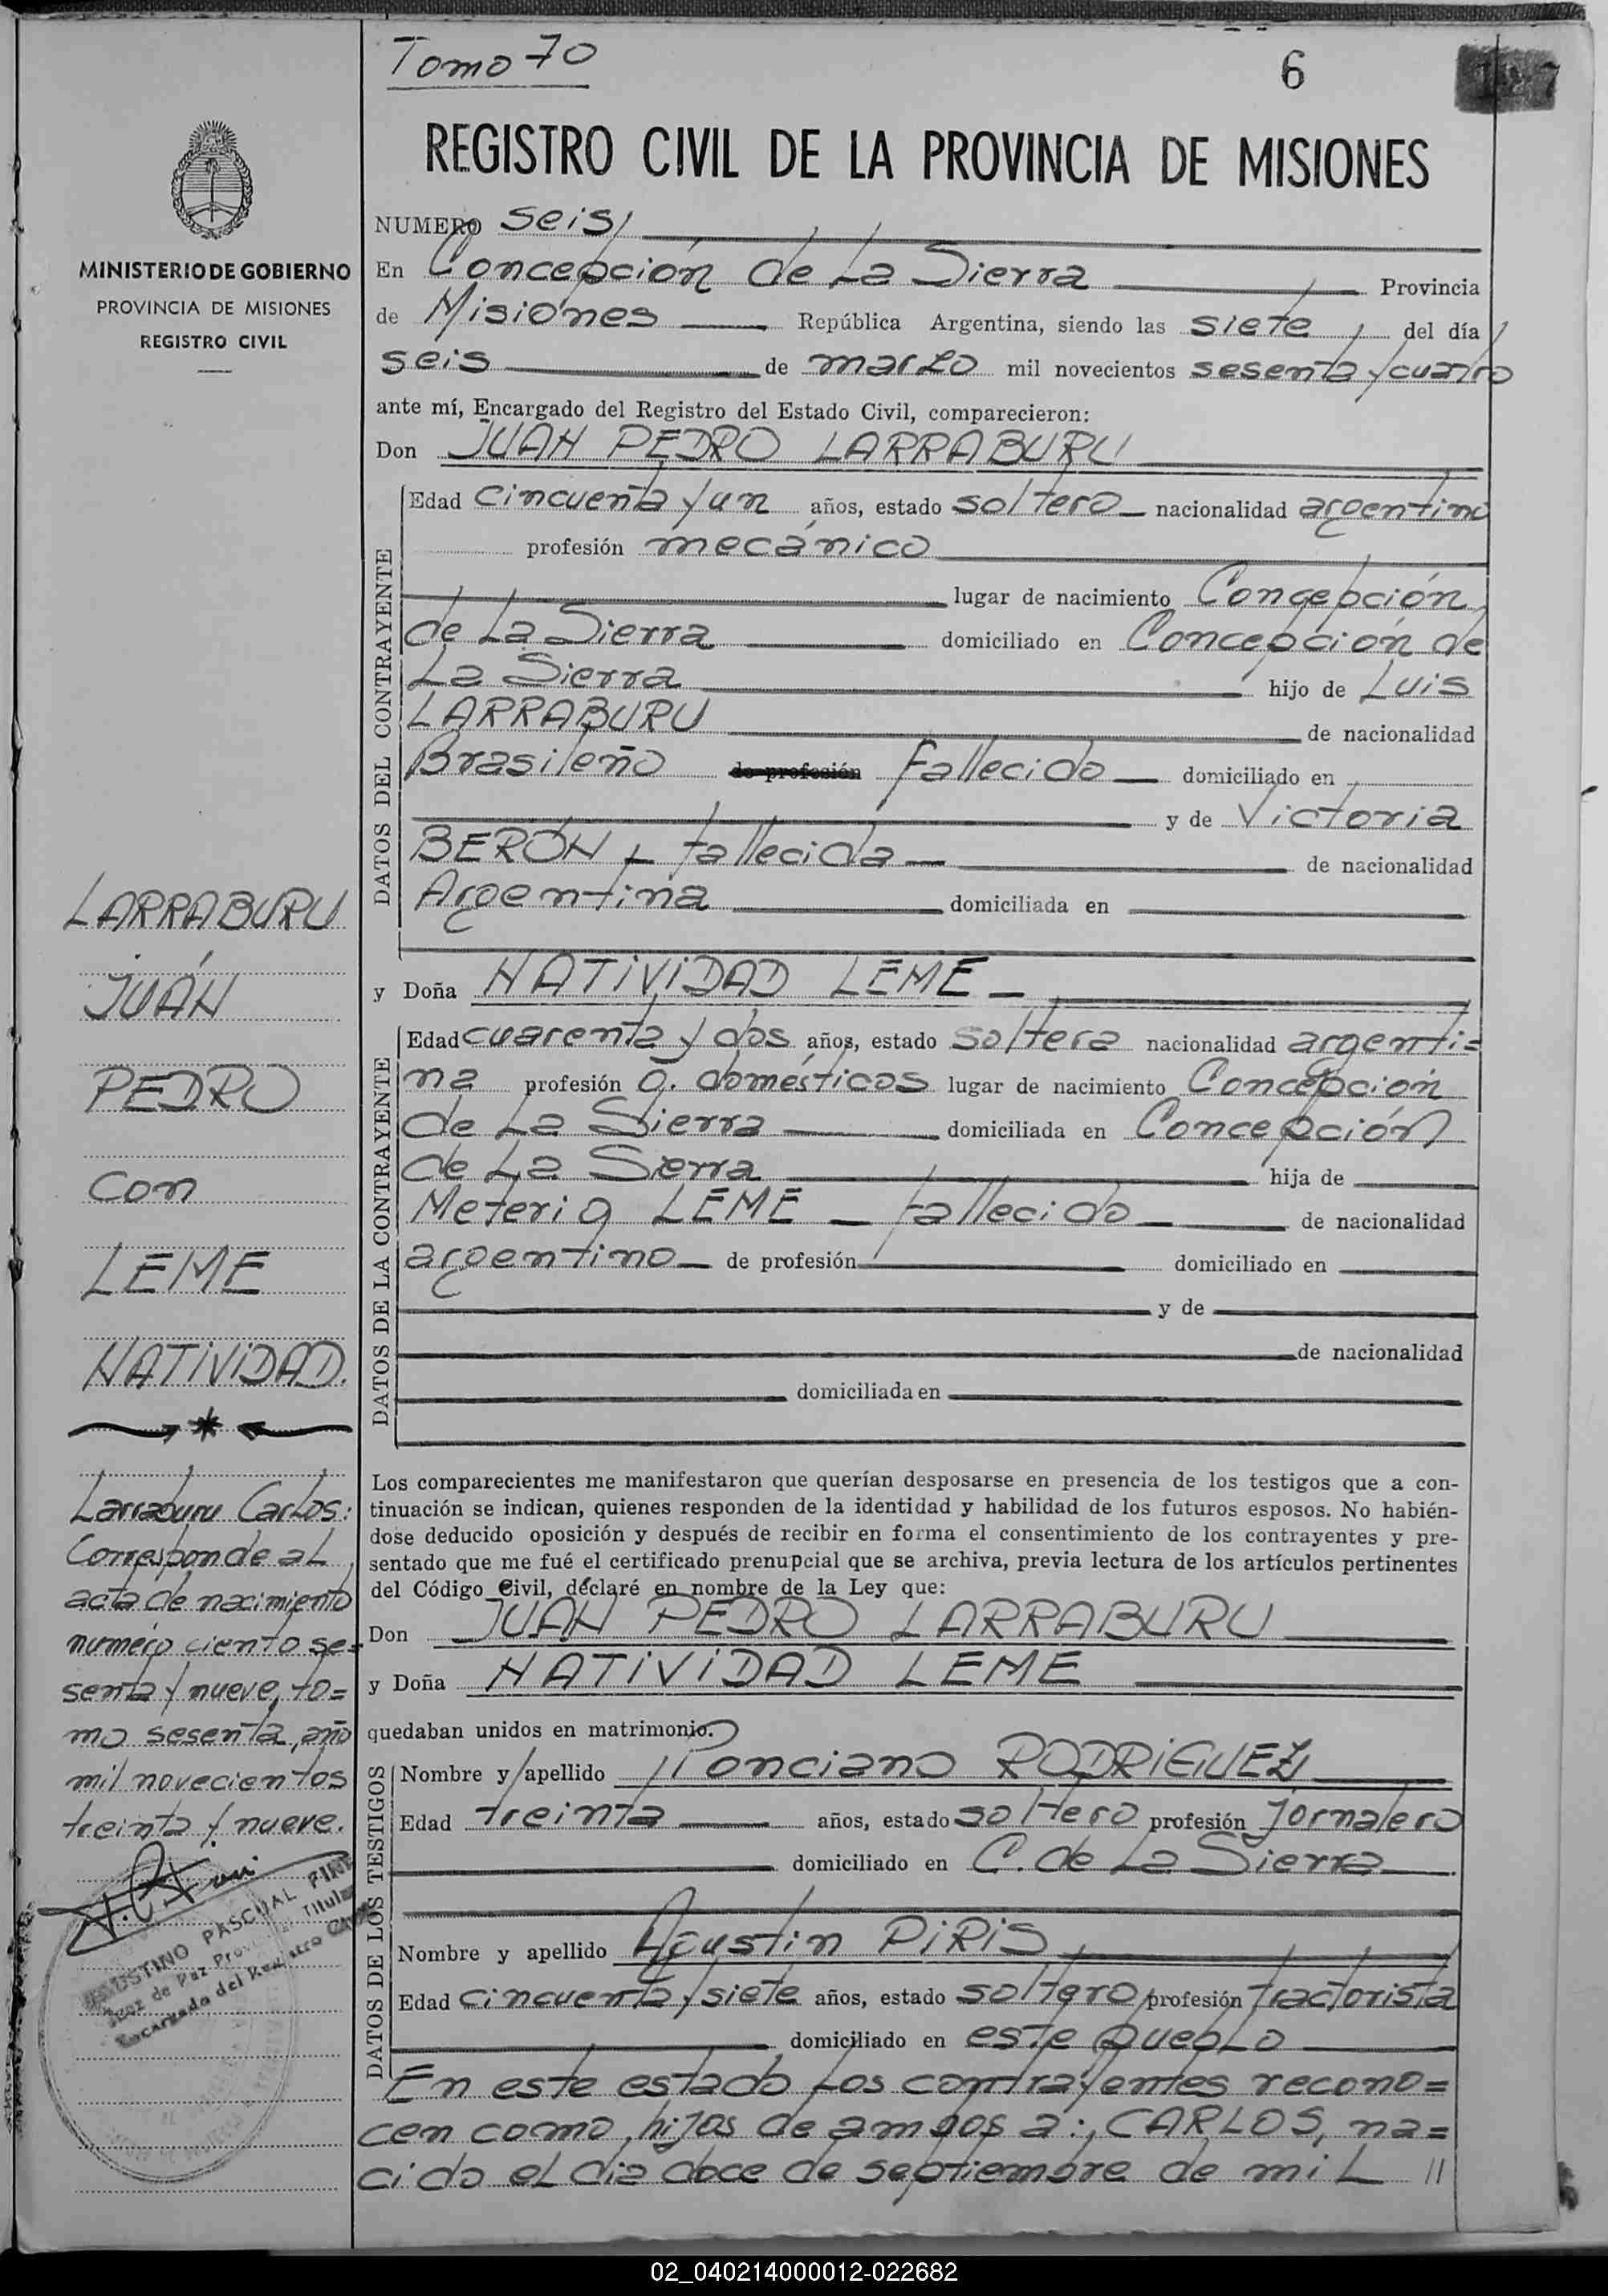 Tomo 70
6
REGISTRO CIVIL DE LA PROVINCIA DE MISIONES
MINISTERIO DE GOBIERNO
PROVINCIA DE MISIONES
REGISTRO CIVIL
NUMERO seis
En Concepción de La Sierra Provincia
de Misiones República Argentina, siendo las siete del día
seis de marzo mil novecientos sesenta y cuatro
ante mí, Encargado del Registro del Estado Civil, comparecieron:
Don JUAN PEDRO LARRABURU
DATOS DEL CONTRAYENTE
Edad cincuenta y un años, estado soltero nacionalidad argentino
profesión mecánico
lugar de nacimiento Concepción
de La Sierra domiciliado en Concepción de
La Sierra hijo de Luis
LARRABURU de nacionalidad
Brasileño de profesión Fallecido domiciliado en
y de Victoria
BERON - fallecida de nacionalidad
Argentina domiciliada en
y Doña NATIVIDAD LEME
DATOS DE LA CONTRAYENTE
Edad cuarenta y dos años, estado soltera nacionalidad argenti=
na profesión Q. domésticos lugar de nacimiento Concepción
de La Sierra domiciliada en Concepción
de La Sierra hija de
Meterio LEME - fallecido de nacionalidad
argentino de profesión domiciliado en
y de
de nacionalidad
domiciliada en
Los comparecientes me manifestaron que querían desposarse en presencia de los testigos que a con-
tinuación se indican, quienes responden de la identidad y habilidad de los futuros esposos. No habién-
dose deducido oposición y después de recibir en forma el consentimiento de los contrayentes y pre-
sentado que me fué el certificado prenupcial que se archiva, previa lectura de los artículos pertinentes
del Código Civil, declaré en nombre de la Ley que:
Don JUAN PEDRO LARRABURU
y Doña NATIVIDAD LEME
quedaban unidos en matrimonio.
DATOS DE LOS TESTIGOS
Nombre y apellido Ponciano RODRIGUEZ
Edad treinta años, estado soltero profesión jornalero
domiciliado en C. de La Sierra
Nombre y apellido Agustin PIRIS
Edad cincuenta y siete años, estado soltero profesión tractorista
domiciliado en este pueblo
En este estado los contrayentes recono=
cen como hijos de ambos a: CARLOS, na=
cido el dia doce de septiembre de mil //
LARRABURU
JUAN
PEDRO
con
LEME
NATIVIDAD.
Larraburu Carlos:
Corresponde al
acta de nacimiento
numero ciento se=
senta y nueve, to=
mo sesenta, año
mil novecientos
treinta y nueve.
PASCUAL
Juez de Paz Titular
Encargado del Registro Civil
02_040214000012-022682